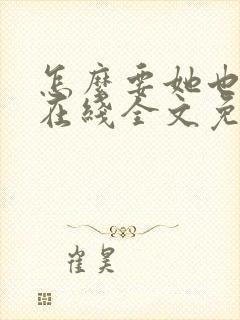 怎麼要她也
在綫全文免
崔昊